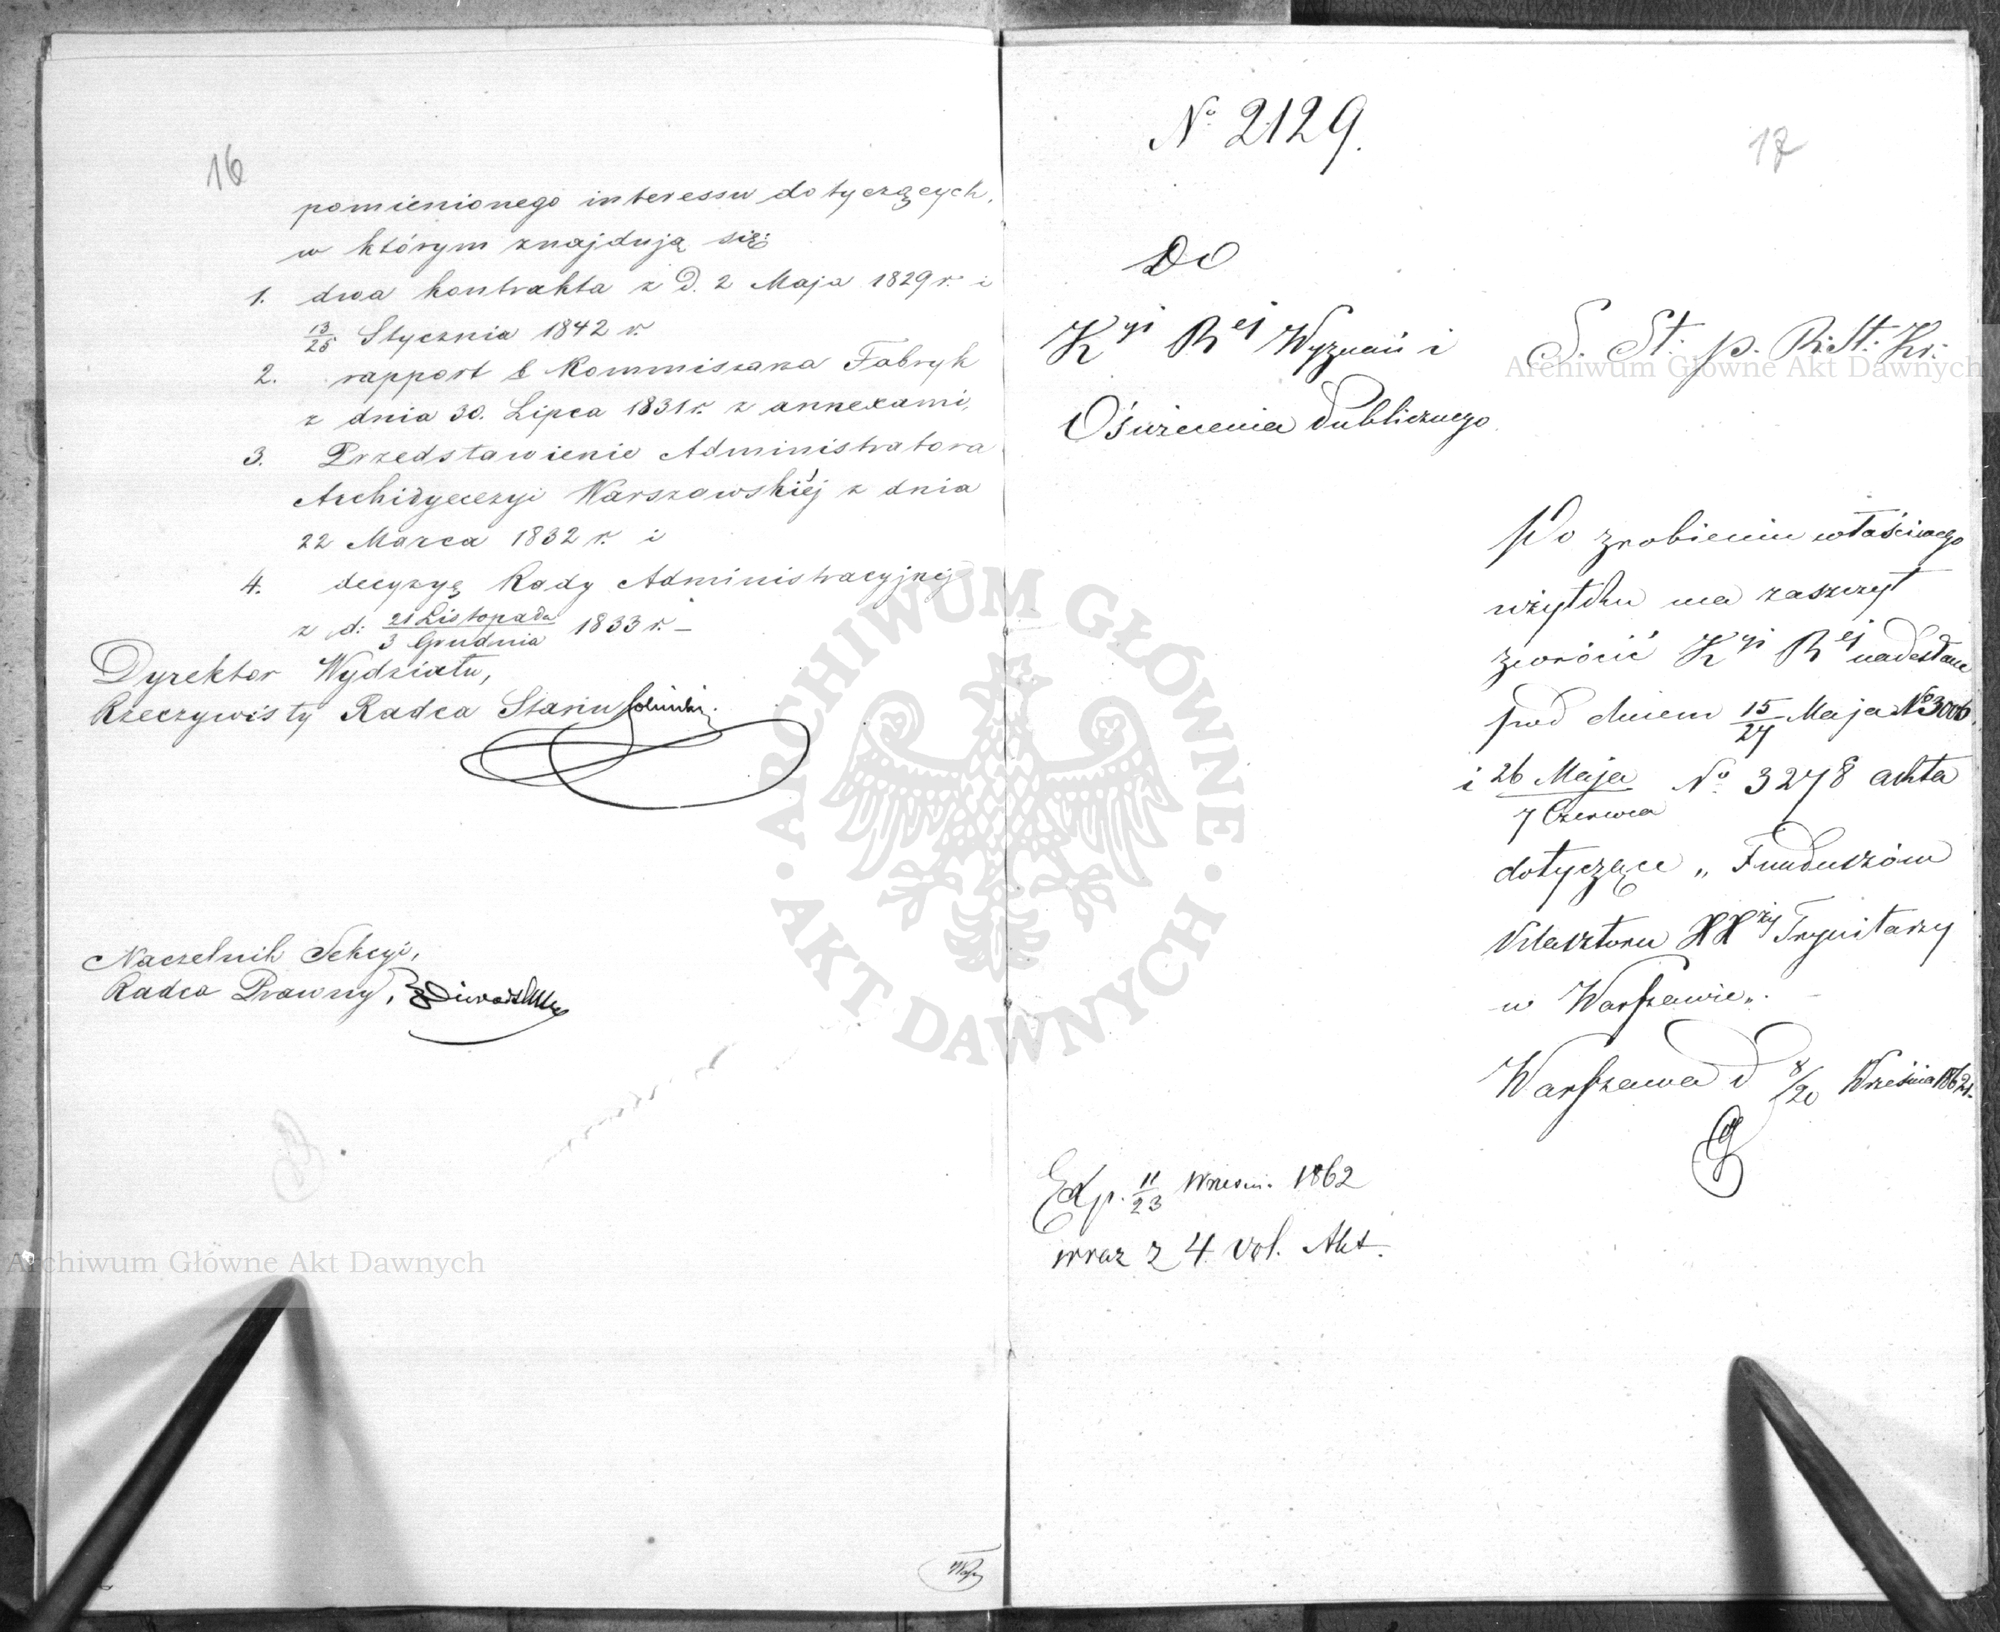 16
pomienionego interessu dotyczących,
w którym znajdują się:
1. dwa kontrakta z d. 2 Maja 1829 r. i
13/25 Stycznia 1842 r.
2. rapport b Kommissarza Fabryk
z dnia 30. Lipca 1831 r. z annexami,
3. Przedstawienie Administratora
Archidyecezyi Warszawskiéj z dnia
22 Marca 1832 r. i
4. decyzyę Rady Administracyjnéj
z d: 21 Listopada/3 Grudnia 1833 r. _
Dyrektor Wydziału,
Rzeczywisty Radca Stanu
Naczelnik Sekcyi,
Radca Prawny,
Archiwum Główne Akt Dawnych
ARCHIWUM GŁÓWNE · AKT DAWNYCH ·
No 2129.
17
Do
Kyi Rej Wyznań i
Oświecenia Publicznego
S. St. p. R. St. Kr:
Archiwum Główne Akt Dawnych
Po zrobieniu właściwego
użytku ma zaszczyt
zwrócić Kyi Rej nadesłane
pod dniem 15/27 Maja No 3006
i 26 Maja/7 Czerwca No 3278 akta
dotyczące „Funduszów
Klasztoru XXży Trynitarzy
w Warszawie".
Warszawa d 8/20 Września 1862 r.
Exp. 11/23 Wrześn. 1862
wraz z 4 vol. Akt.